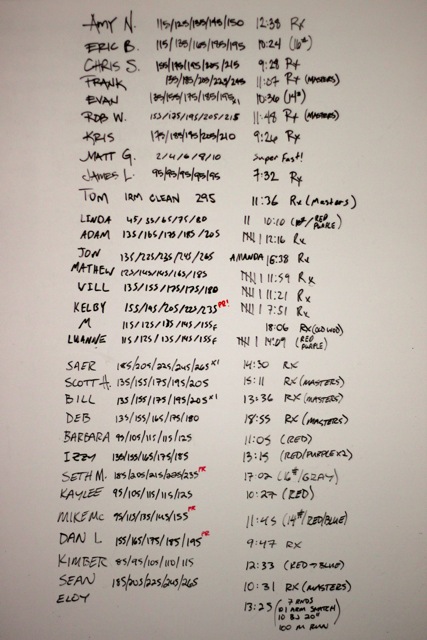 AMY N. 115/125/135/145/150 12:38 Rx
ERIC B. 115/135/165/185/195 10:24 (16#)
CHRIS S. 155/185/195/205/215 9:28 Rx
FRANK 135/185/205/225/245 11:07 Rx (MASTERS)
EVAN 135/155/175/185/195x1 10:36 (14#)
ROB W. 155/125/195/205/215 11:48 Rx (MASTERS)
KRIS 175/185/195/205/210 9:26 Rx
MATT G. 2/4/6/8/10 Super Fast!
JAMES L. 95/95/95/95/95 7:32 Rx
TOM 1RM CLEAN 295 11:36 Rx (Masters)
LINDA 45/55/65/75/80 11 10:10 (10#/RED PURPLE)
ADAM 135/165/175/185/205 12:16 Rx
JON 135/225/235/245/265 AMANDA 15:38 Rx
MATHEW 125/145/145/165/185 11:59 Rx
WILL 135/155/175/175/180 11:21 Rx
KELBY 155/195/205/220/235 PR! 7:51 Rx
M 115/125/135/145/155F 18:06 RX (OLD WOD)
LUANNE 115/125/135/145/155F 14:09 (RED PURPLE)
SAER 185/205/225/245/265x1 14:30 RX
SCOTT H. 135/155/175/195/205 15:11 RX (MASTERS)
BILL 135/155/175/195/205x1 13:36 RX (MASTERS)
DEB 135/155/165/175/180 18:55 RX (MASTERS)
BARBARA 95/105/115/115/125 11:05 (RED)
IZZY 135/155/165/175/185 13:15 (RED/PURPLEx2)
SETH M. 185/205/215/225/235 PR 17:02 (16#/GRAY)
KAYLEE 95/105/115/115/125 10:27 (RED)
MIKE Mc 95/115/135/145/155 PR 11:45 (14#/RED/BLUE)
DAN L 155/165/175/185/195 PR 9:47 RX
KIMBER 85/95/105/110/115 12:33 (RED→BLUE)
SEAN 185/205/225/245/265 10:31 RX (MASTERS)
ELOY 13:23 (7 RNDS
ARM SNATCH
10 BJ 20"
100 M RUN